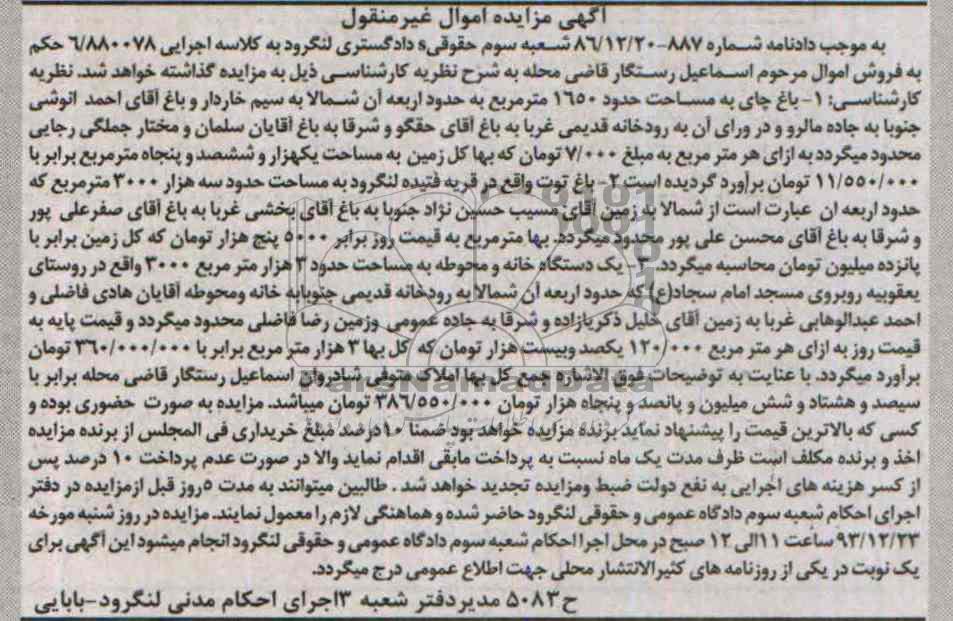 آگهی مزایده اموال غیرمنقول
به موجب دادنامه شماره ۸۸۷-۸۶/۱۲/۲۰ شعبه سوم حقوقیs دادگستری لنگرود به کلاسه اجرایی ۶/۸۸۰۰۷۸ حکم
به فروش اموال مرحوم اسماعیل رستگار قاضی محله به شرح نظریه کارشناسی ذیل به مزایده گذاشته خواهد شد. نظریه
کارشناسی: ۱- باغ چای به مساحت حدود ۱۶۵۰ مترمربع به حدود اربعه آن شمالا به سیم خاردار و باغ آقای احمد انوشی
جنوبا به جاده مالرو و در ورای آن به رودخانه قدیمی غربا به باغ آقای حقگو و شرقا به باغ آقایان سلمان و مختار جملگی رجایی
محدود میگردد به ازای هر متر مربع به مبلغ ۷/۰۰۰ تومان که بها کل زمین به مساحت یکهزار و ششصد و پنجاه مترمربع برابر با
۱۱/۵۵۰/۰۰۰ تومان برآورد گردیده است ۲- باغ توت واقع در قریه فتیده لنگرود به مساحت حدود سه هزار ۳۰۰۰ مترمربع که
حدود اربعه ان عبارت است از شمالا به زمین آقای مسیب حسین نژاد جنوبا به باغ آقای بخشی غربا به باغ آقای صفرعلی پور
و شرقا به باغ آقای محسن علی پور محدود میگردد. بها مترمربع به قیمت روز برابر ۵۰۰۰ پنج هزار تومان که کل زمین برابر با
پانزده میلیون تومان محاسبه میگردد. ۳- یک دستگاه خانه و محوطه به مساحت حدود ۳ هزار متر مربع ۳۰۰۰ واقع در روستای
یعقوبیه روبروی مسجد امام سجاد(ع) که حدود اربعه آن شمالا به رودخانه قدیمی جنوبابه خانه ومحوطه آقایان هادی فاضلی و
احمد عبدالوهابی غربا به زمین آقای خلیل ذکریازاده و شرقا به جاده عمومی وزمین رضا فاضلی محدود میگردد و قیمت پایه به
قیمت روز به ازای هر متر مربع ۱۲۰/۰۰۰ یکصد وبیست هزار تومان که کل بها ۳ هزار متر مربع برابر با ۳۶۰/۰۰۰/۰۰۰ تومان
برآورد میگردد. با عنایت به توضیحات فوق الاشاره جمع کل بها املاک متوفی شادروان اسماعیل رستگار قاضی محله برابر با
سیصد و هشتاد و شش میلیون و پانصد و پنجاه هزار تومان ۳۸۶/۵۵۰/۰۰۰ تومان میباشد. مزایده به صورت حضوری بوده و
کسی که بالاترین قیمت را پیشنهاد نماید برنده مزایده خواهد بود ضمنا ۱۰درصد مبلغ خریداری فی المجلس از برنده مزایده
اخذ و برنده مکلف است ظرف مدت یک ماه نسبت به پرداخت مابقی اقدام نماید والا در صورت عدم پرداخت ۱۰ درصد پس
از کسر هزینه های اجرایی به نفع دولت ضبط ومزایده تجدید خواهد شد . طالبین میتوانند به مدت ۵روز قبل ازمزایده در دفتر
اجرای احکام شعبه سوم دادگاه عمومی و حقوقی لنگرود حاضر شده و هماهنگی لازم را معمول نمایند. مزایده در روز شنبه مورخه
۹۳/۱۲/۲۳ ساعت ۱۱الی ۱۲ صبح در محل اجرا احکام شعبه سوم دادگاه عمومی و حقوقی لنگرود انجام میشود این آگهی برای
یک نوبت در یکی از روزنامه های کثیرالانتشار محلی جهت اطلاع عمومی درج میگردد.
ح ۵۰۸۳ مدیردفتر شعبه ۳اجرای احکام مدنی لنگرود-بابایی